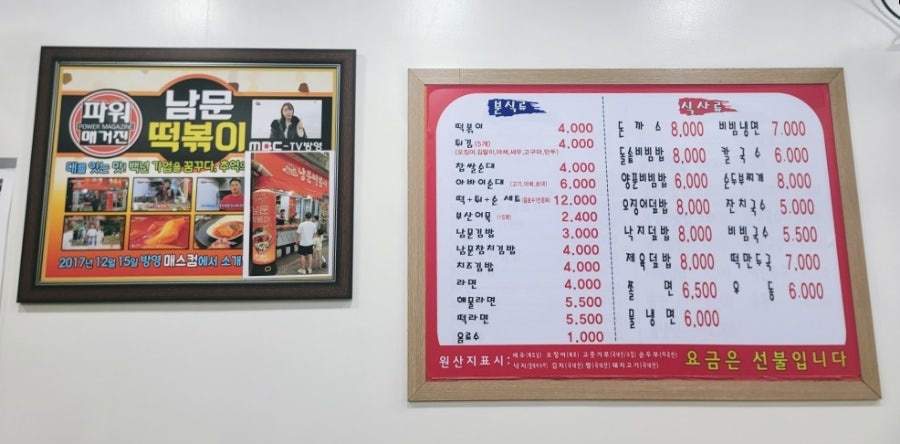 파워
POWER MAGAZINE
매거진
남문
떡볶이
MBC-TV방영
대를 잇는 맛! 백년 가업을 꿈꾸다. 추억의
남문떡볶이
남문
떡볶이
2017년 12월 15일 방영 매스컴에서 소개
분식류
떡볶이 4,000
튀김 (5개) 4,000
(오징어,김말이,야채,새우,고구마,만두)
찹쌀순대 4,000
아바이순대 (고기,야채,순대) 6,000
떡+튀+순 세트 12,000
부산어묵 2,400
남문김밥 3,000
남문참치김밥 4,000
치즈김밥 4,000
라면 4,000
해물라면 5,500
떡라면 5,500
음료수 1,000
식사류
돈까스 8,000
돌솥비빔밥 8,000
양푼비빔밥 6,000
오징어덮밥 8,000
낙지덮밥 8,000
제육덮밥 8,000
쫄면 6,500
물냉면 6,000
비빔냉면 7,000
칼국수 6,000
순두부찌개 8,000
잔치국수 5,000
비빔국수 5,500
떡만두국 7,000
우동 6,000
원산지표시:
요금은 선불입니다